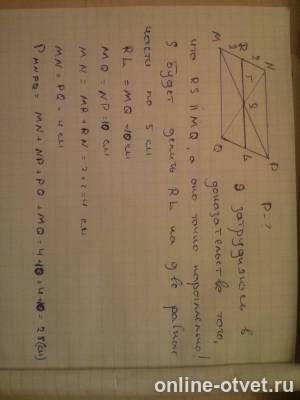 M
2
R
2
N
5
S
Q
L
P
P - ?
Я затрудняюсь в
доказательстве того,
что RS || MQ, а оно точно параллельно!
S будет делить RL на две равные
части по 5 см
RL = MQ = 10 см
MQ = NP = 10 см
MN = MR + RN = 2 + 2 = 4 см
MN = PQ = 4 см
P MNPQ = MN + NP + PQ + MQ = 4 + 10 + 4 + 10 = 28 (см)
online-otvet.ru